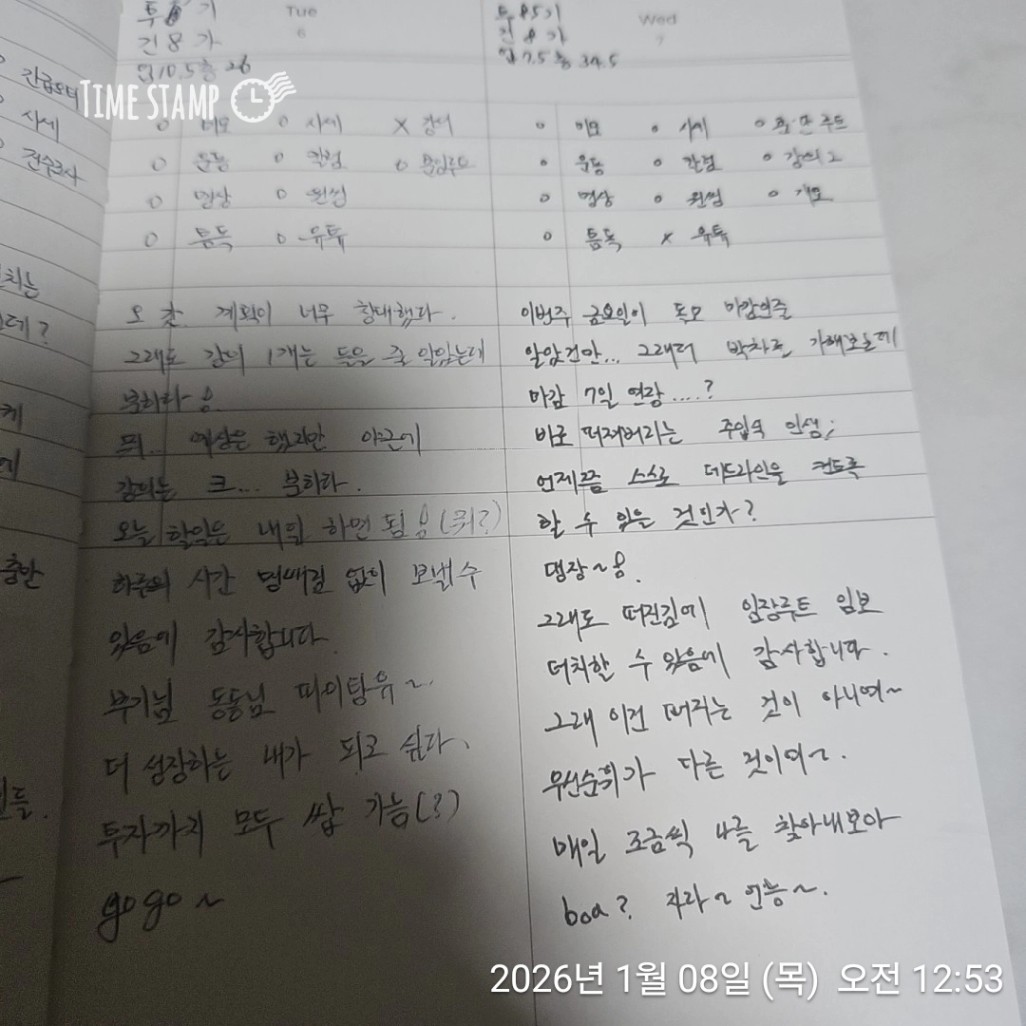 Tue
6
건 8 가
TIME STAMP
사세
o 미모 o 시세 x 강의
o 운동 o 칼럼
o 명상 o 원씽
o 틈독 o 유튜
오늘 계획이 너무 황대했다.
그래도 강의 1개는 들을 줄 알았는데
분하라 용.
뭐... 예상은 했지만 야근에
강의는 크... 분하라.
오늘 할일은 내일 하면 됨 용 (뭐?)
하루의 시간 멍때림 없이 보낼수
있음에 감사합니다.
부기님 동동님 파이탕유~.
더 성장하는 내가 되고 싶다.
투자까지 모두 쌉 가능(?)
gogo~
Wed
7
투 85기
건 8 가
업 7.5 총 34.5
o 미모 o 시세
o 운동 o 칼럼 o 강의2
o 명상 o 원씽
o 틈독 x 유튜
이번주 금요일이 독모 마감인줄
알았건만... 그래서 박차를 가해보는데
마감 7일 연장....?
바로 퍼져버리는 주입식 인생;
언제쯤 스스로 데드라인을 컨트롤
할 수 있을 것인가?
댕장~용.
그래도 퍼진김에 임장루트 임보
터치할 수 있음에 감사합니다.
그래 이건 퍼지는 것이 아니여~
우선순위가 다른 것이여~.
매일 조금씩 나를 찾아내보아
boa? 자라~ 인능~.
2026년 1월 08일 (목) 오전 12:53